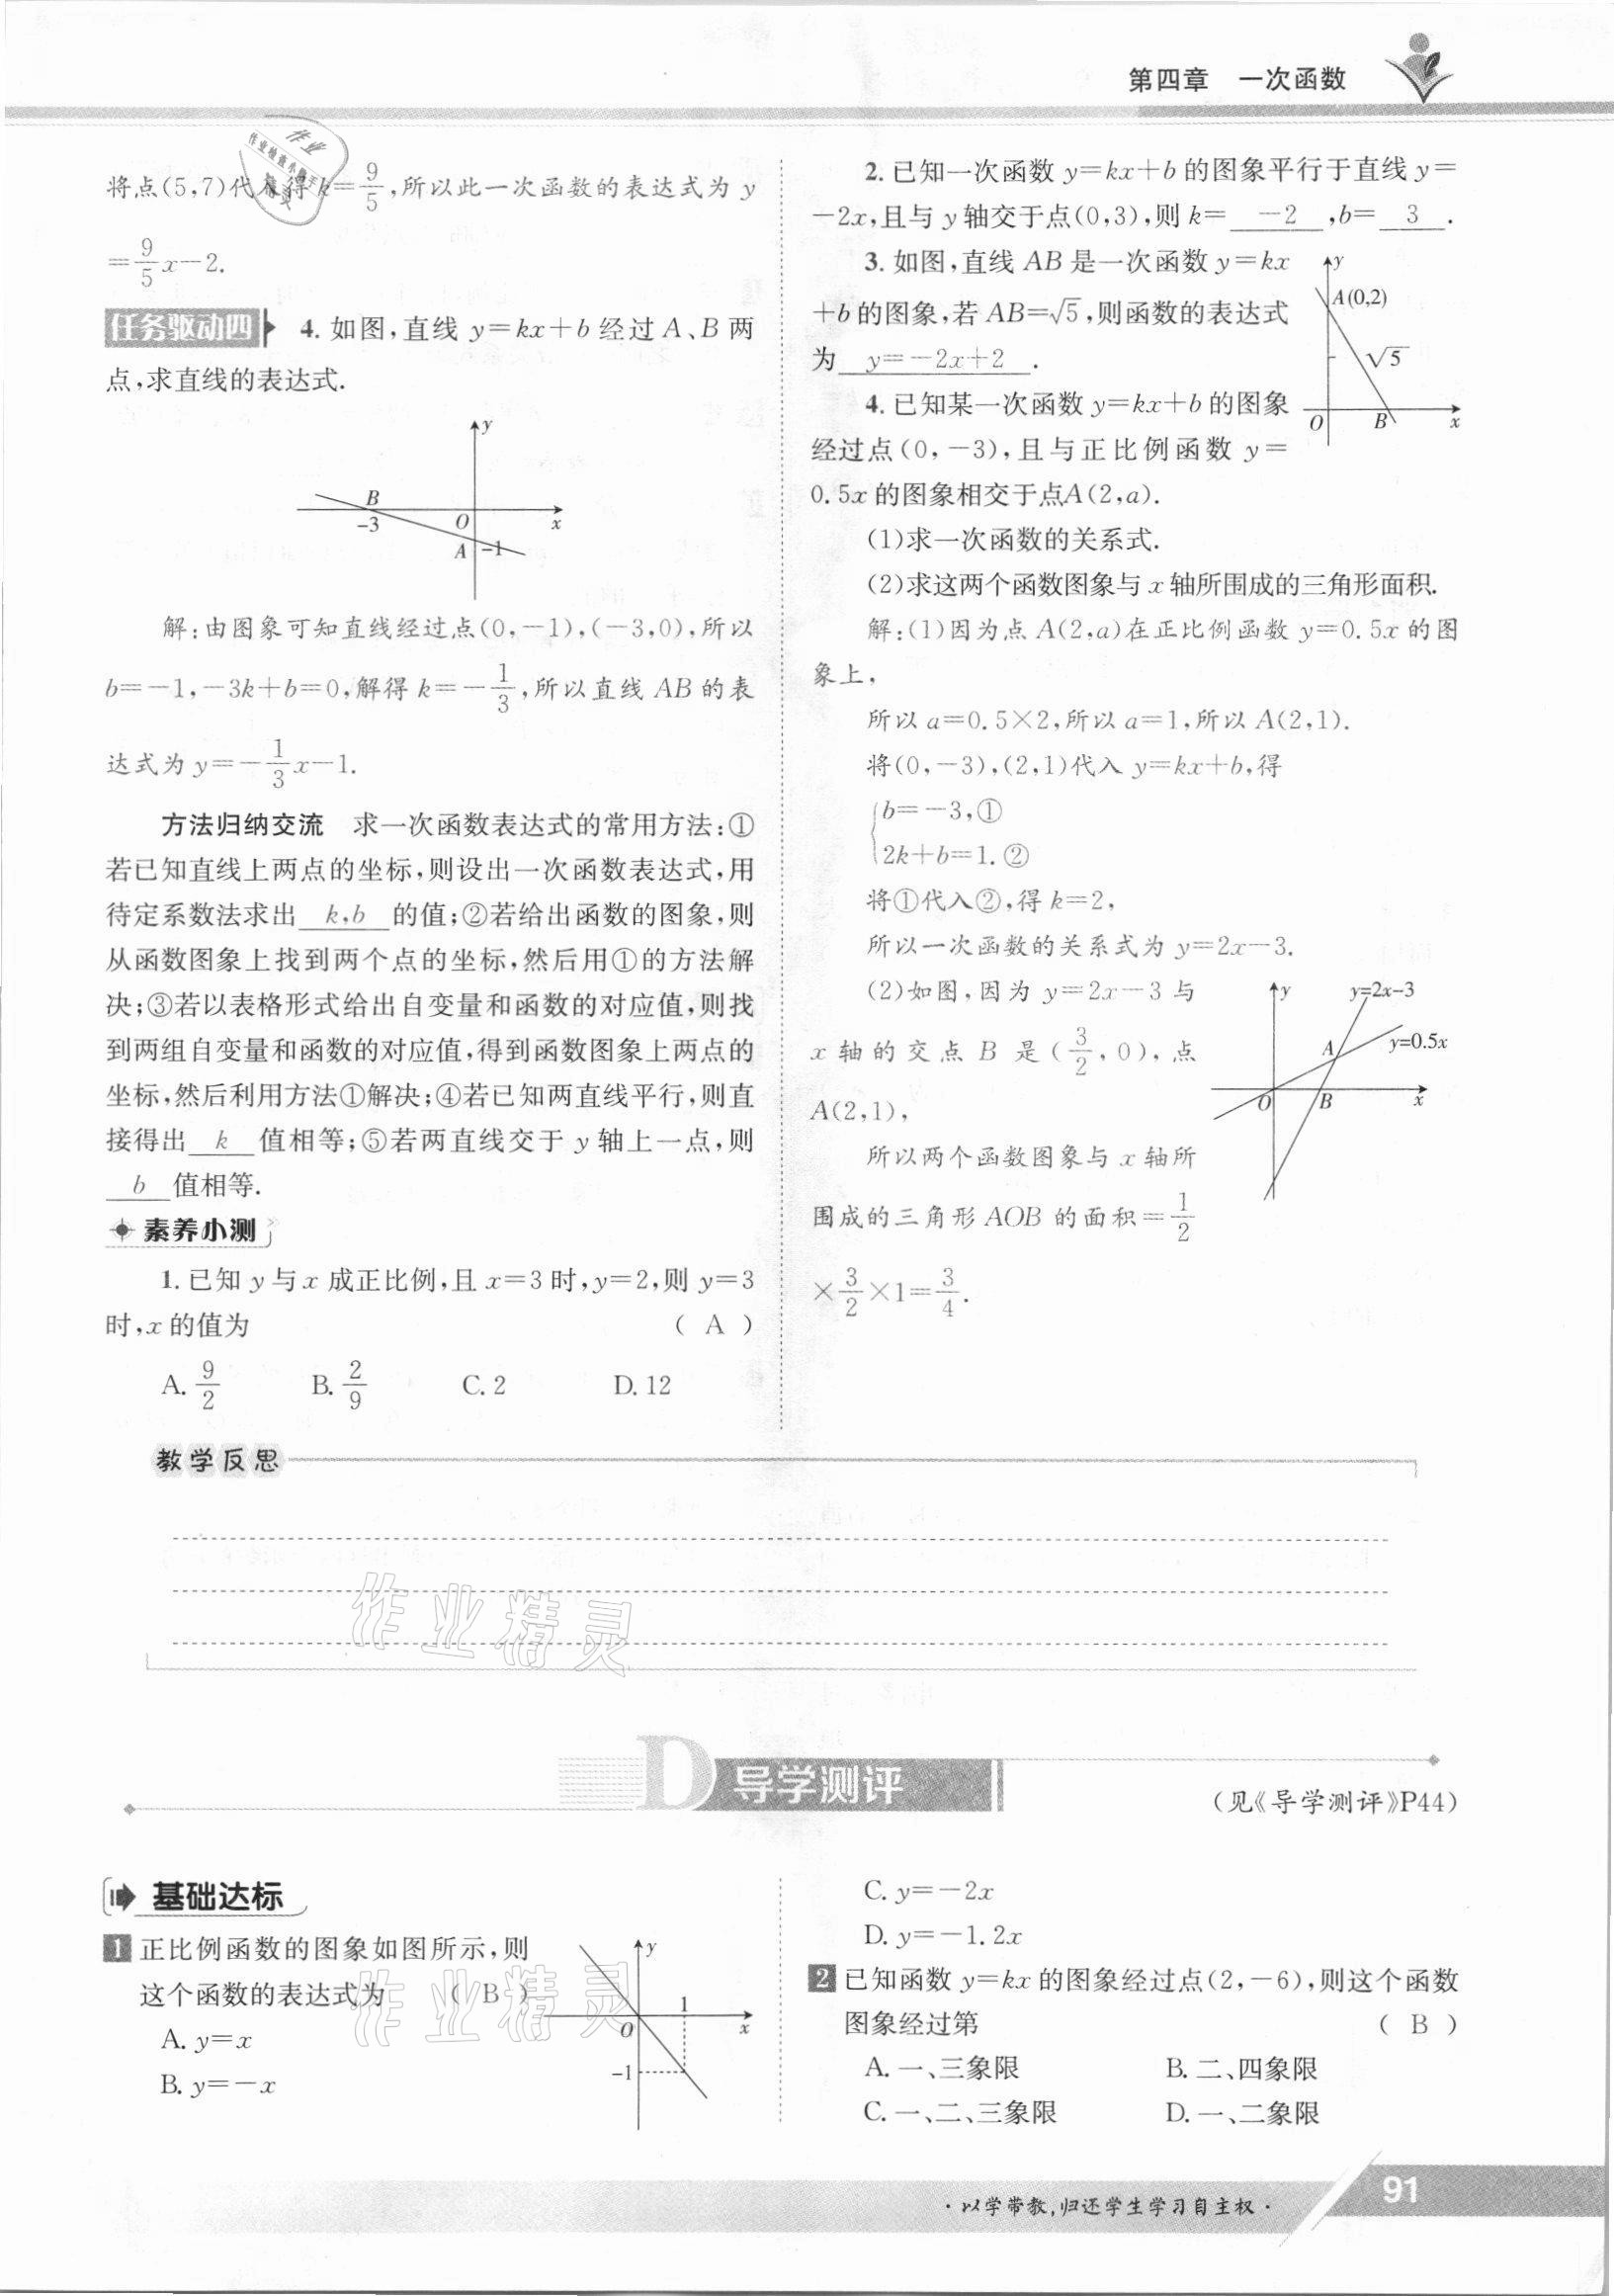 第四章 一次函数
将点(5,7)代入得k=9/5,所以此一次函数的表达式为 y
=9/5x-2.
任务驱动四 4. 如图,直线 y=kx+b 经过 A、B 两
点,求直线的表达式.
y
B
-3
O
x
A
-1
解:由图象可知直线经过点(0,-1),(-3,0),所以
b=-1,-3k+b=0,解得 k=-1/3,所以直线 AB 的表
达式为 y=-1/3x-1.
方法归纳交流 求一次函数表达式的常用方法:①
若已知直线上两点的坐标,则设出一次函数表达式,用
待定系数法求出 k,b 的值;②若给出函数的图象,则
从函数图象上找到两个点的坐标,然后用①的方法解
决;③若以表格形式给出自变量和函数的对应值,则找
到两组自变量和函数的对应值,得到函数图象上两点的
坐标,然后利用方法①解决;④若已知两直线平行,则直
接得出 k 值相等;⑤若两直线交于 y 轴上一点,则
b 值相等.
素养小测
1. 已知 y 与 x 成正比例,且 x=3 时,y=2,则 y=3
时,x 的值为 ( A )
A. 9/2 B. 2/9 C. 2 D. 12
2. 已知一次函数 y=kx+b 的图象平行于直线 y=
-2x,且与 y 轴交于点(0,3),则 k= -2 ,b= 3 .
3. 如图,直线 AB 是一次函数 y=kx
+b 的图象,若 AB=√5,则函数的表达式
为 y=-2x+2 .
y
A(0,2)
√5
O
B
x
4. 已知某一次函数 y=kx+b 的图象
经过点(0,-3),且与正比例函数 y=
0.5x 的图象相交于点A(2,a).
(1)求一次函数的关系式.
(2)求这两个函数图象与 x 轴所围成的三角形面积.
解:(1)因为点 A(2,a)在正比例函数 y=0.5x 的图
象上,
所以 a=0.5×2,所以 a=1,所以 A(2,1).
将(0,-3),(2,1)代入 y=kx+b,得
{b=-3,①
2k+b=1.②
将①代入②,得 k=2,
所以一次函数的关系式为 y=2x-3.
(2)如图,因为 y=2x-3 与
x 轴的交点 B 是(3/2,0),点
A(2,1),
所以两个函数图象与 x 轴所
围成的三角形 AOB 的面积=1/2
×3/2×1=3/4.
y
y=2x-3
A
y=0.5x
O
B
x
教学反思
作业精灵
D 导学测评
(见《导学测评》P44)
基础达标
1 正比例函数的图象如图所示,则
这个函数的表达式为 ( B )
A. y=x
B. y=-x
y
1
O
x
-1
作业精灵
C. y=-2x
D. y=-1.2x
2 已知函数 y=kx 的图象经过点(2,-6),则这个函数
图象经过第 ( B )
A. 一、三象限 B. 二、四象限
C. 一、二、三象限 D. 一、二象限
· 以学带教,归还学生学习自主权 ·
91